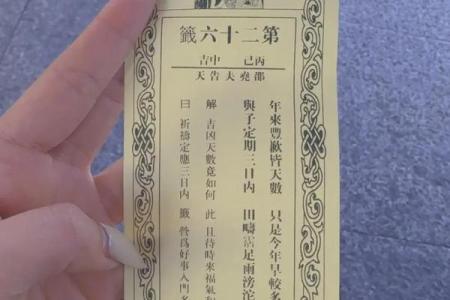 第二十六籤
丙己　中吉
邵堯夫告天
年來豐歉皆天數　只是今年旱較多
與子定期三日內　田疇霑足雨滂沱
解　吉凶天數竟如何　此　且待時來福氣
曰　祈禱定應三日內　籤　管爲好事入門多